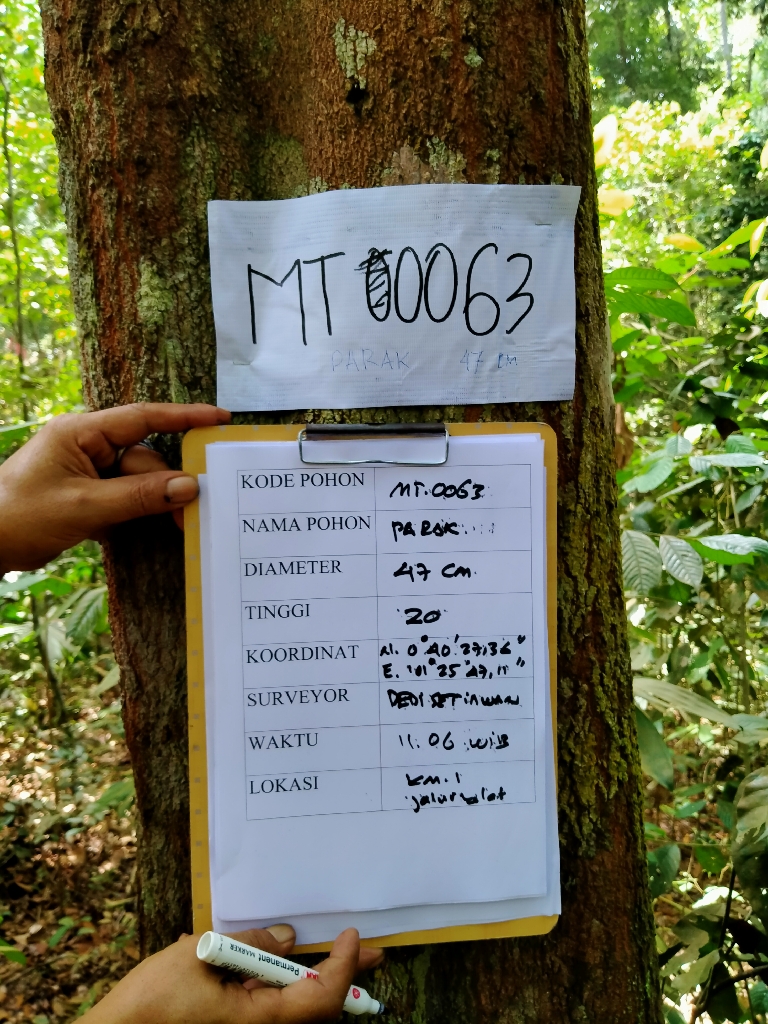 MT 0063
PARAK 47 CM
KODE POHON MT.0063
NAMA POHON PARAK
DIAMETER 47 cm
TINGGI 20
KOORDINAT N. 0° 40' 27,36"
E. 101° 25' 47,11"
SURVEYOR DEDI SETIAWAN
WAKTU 11:06 WIB
LOKASI KM.1
jalur
Permanent
MARKER